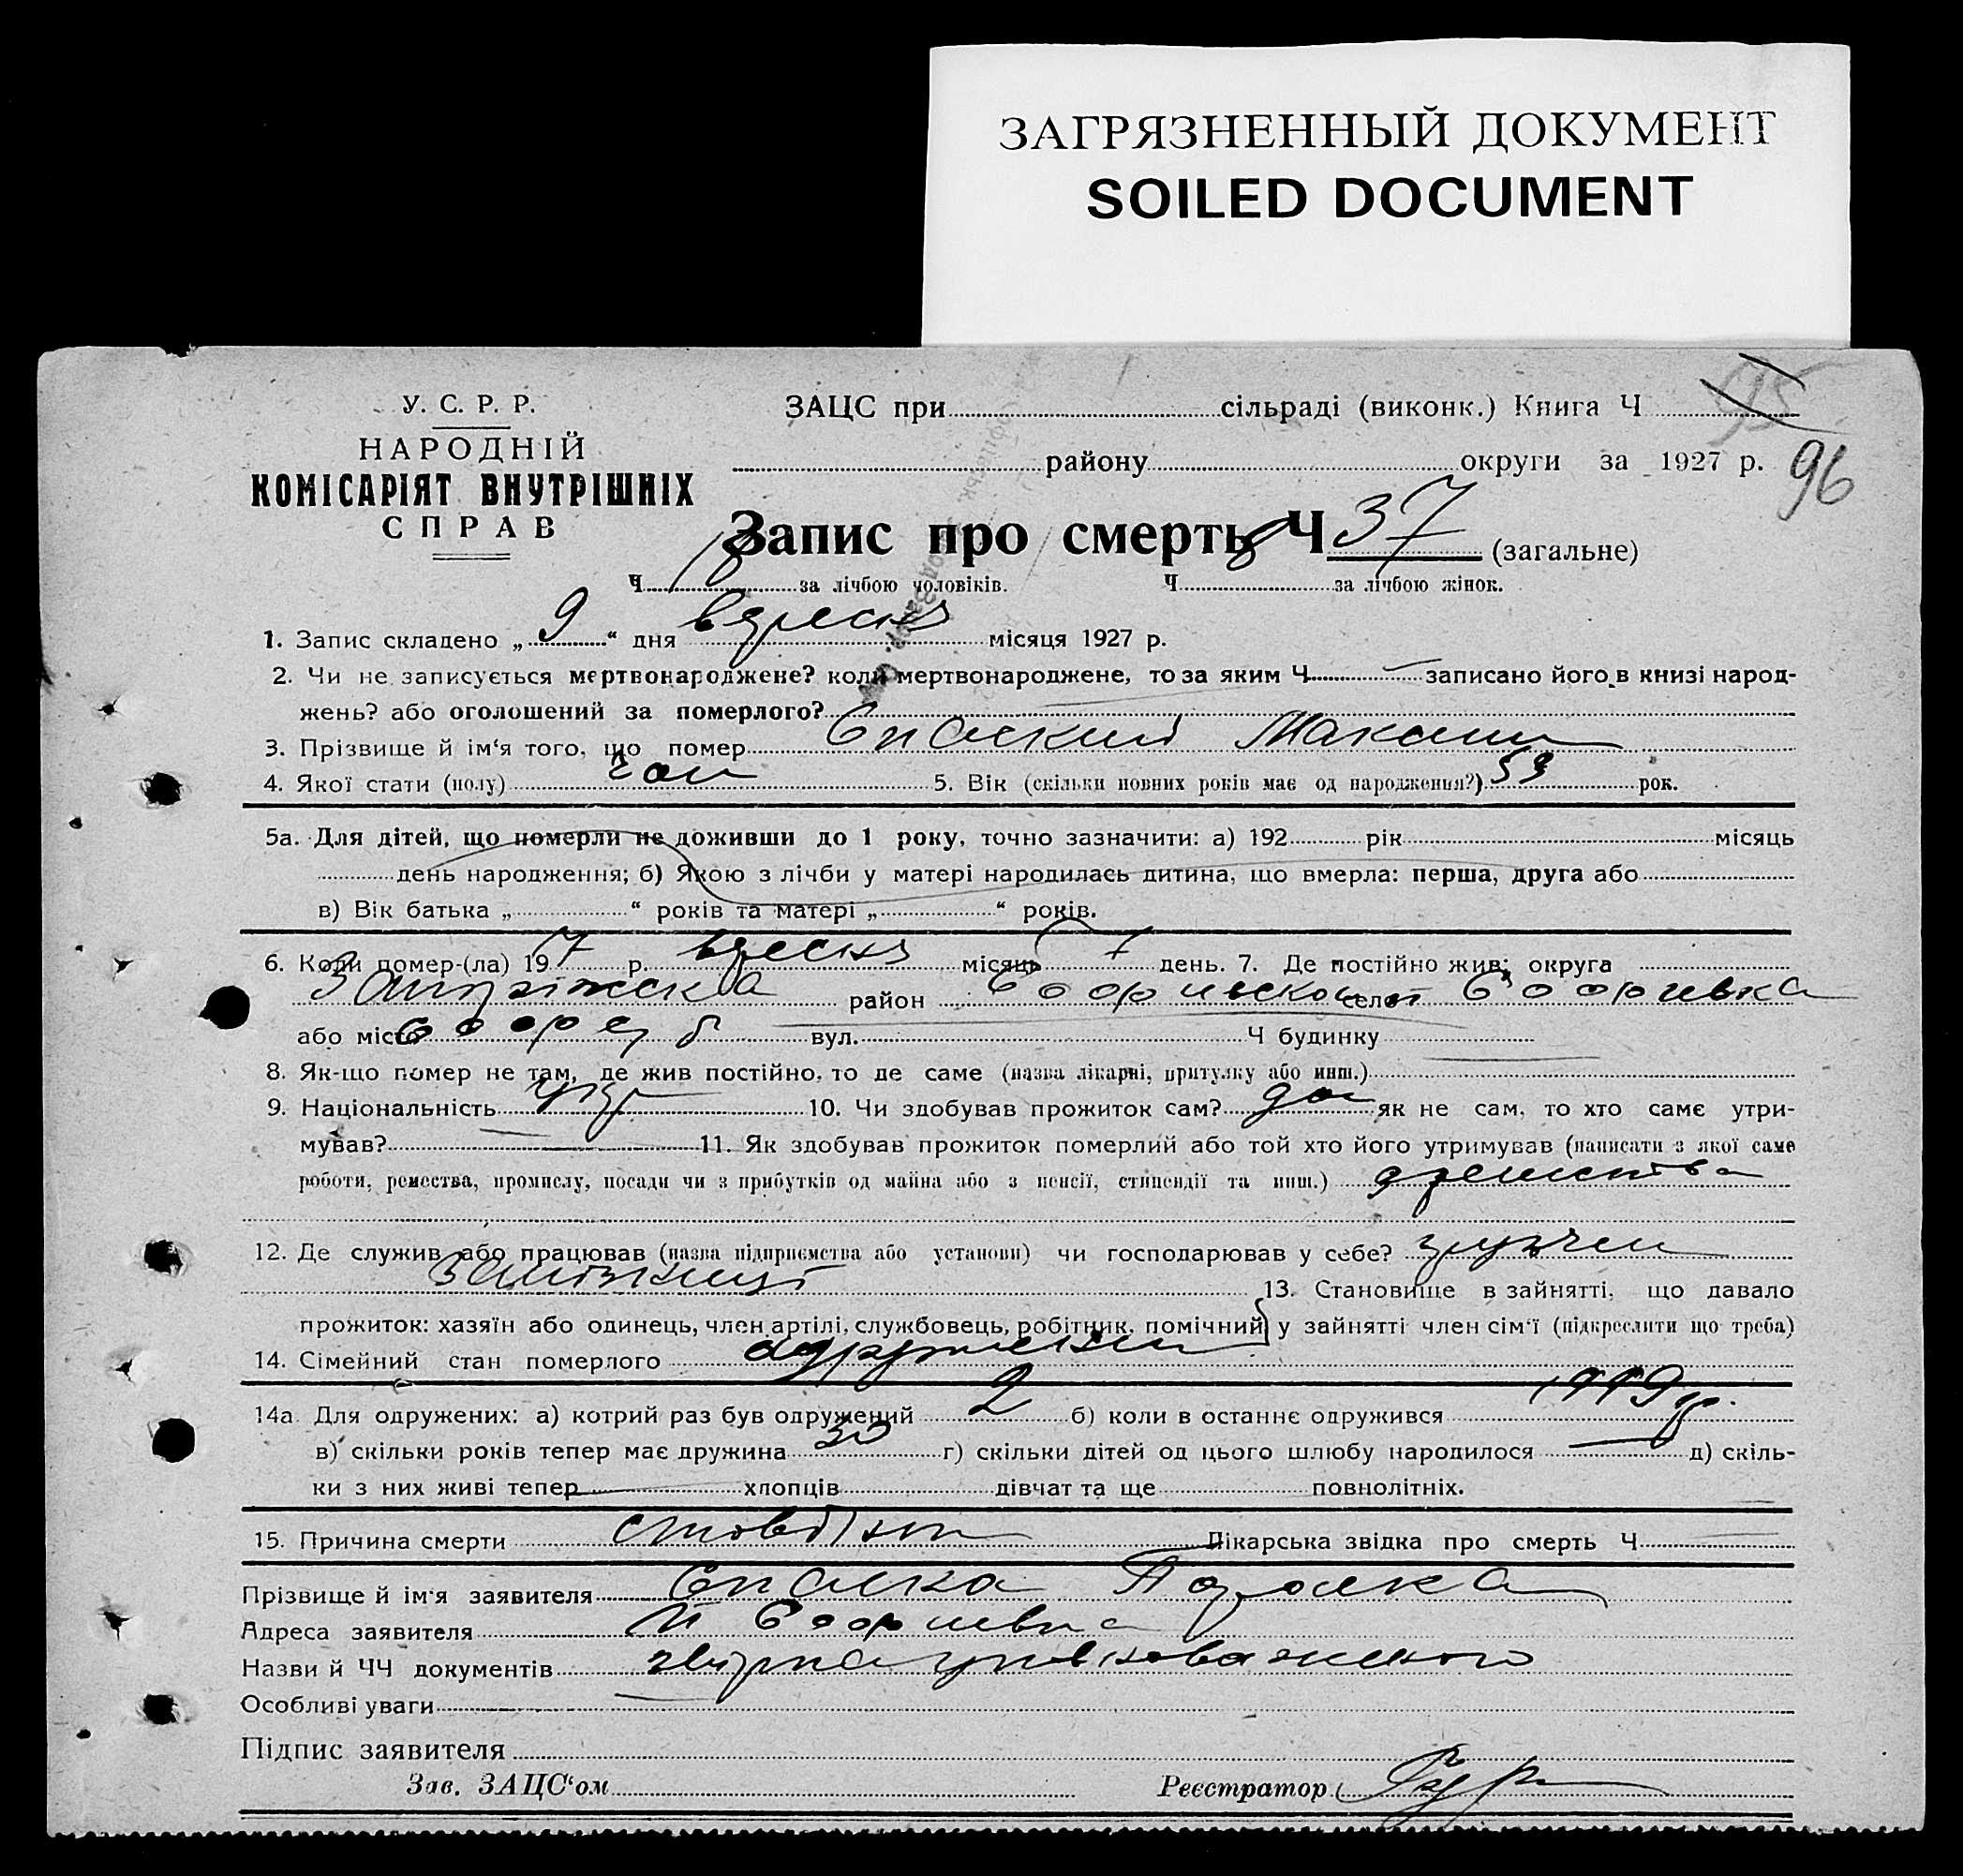 ЗАГРЯЗНЕННЫЙ ДОКУМЕНТ
SOILED DOCUMENT
У. С. Р. Р.
НАРОДНІЙ
КОМІСАРІЯТ ВНУТРІШНІХ
СПРАВ
ЗАЦС при сільраді (виконк.) Книга Ч 95
району округи за 1927 р. 96
Запис про смерть Ч 37 (загальне)
Ч 18 за лічбою чоловіків. Ч за лічбою жінок.
1. Запис складено „ 9 “ дня вересня місяця 1927 р.
2. Чи не записується мертвонароджене? коли мертвонароджене, то за яким Ч записано його в книзі народ-
жень? або оголошений за померлого?
3. Прізвище й ім‘я того, що помер Спаский Максим
4. Якої стати (полу) чол 5. Вік (скільки повних років має од народження?) 59 рок.
5а. Для дітей, що померли не доживши до 1 року, точно зазначити: а) 192 рік місяць
день народження; б) Якою з лічби у матері народилась дитина, що вмерла: перша, друга або
в) Вік батька „ “ років та матері „ “ років.
6. Коли помер-(ла) 19 7 р. вересня місяць 7 день. 7. Де постійно жив: округа
Запоріжська район Софиевскои село Софиевка
або місто вул. Ч будинку
8. Як-що помер не там, де жив постійно, то де саме (назва лікарні, притулку або инш.)
9. Національність укр 10. Чи здобував прожиток сам? да як не сам, то хто саме утри-
мував? 11. Як здобував прожиток померлий або той хто його утримував (написати з якої саме
роботи, ремества, промислу, посади чи з прибутків од майна або з пенсії, стипендії та инш.)
12. Де служив або працював (назва підприємства або установи) чи господарював у себе?
залізниці 13. Становище в зайнятті, що давало
прожиток: хазяїн або одинець, член артілі, службовець, робітник, помічний у зайнятті член сім‘ї (підкреслити що треба)
14. Сімейний стан померлого одружений
14а. Для одружених: а) котрий раз був одружений 2 б) коли в останнє одружився 1919 р.
в) скільки років тепер має дружина 30 г) скільки дітей од цього шлюбу народилося д) скіль-
ки з них живі тепер хлопців дівчат та ще повнолітніх.
15. Причина смерти Лікарська звідка про смерть Ч
Прізвище й ім‘я заявителя Спаска Параска
Адреса заявителя Софиевка
Назви й ЧЧ документів
Особливі уваги
Підпис заявителя
Зав. ЗАЦС‘ом Реєстратор